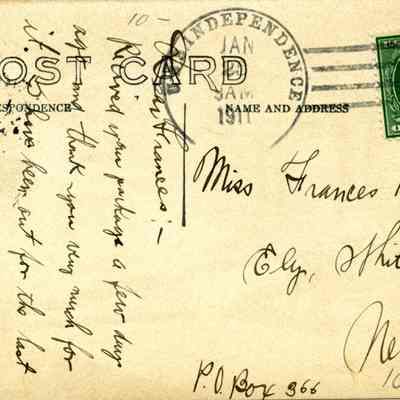 POST CARD
CORRESPONDENCE
NAME AND ADDRESS
INDEPENDENCE
JAN
1911
10-
Dear Frances:-
Received your package a few days
ago and thank you very much for
it. I have been out for the last
Miss Frances
Ely, Whit
Ne
P.O. Box 366
10